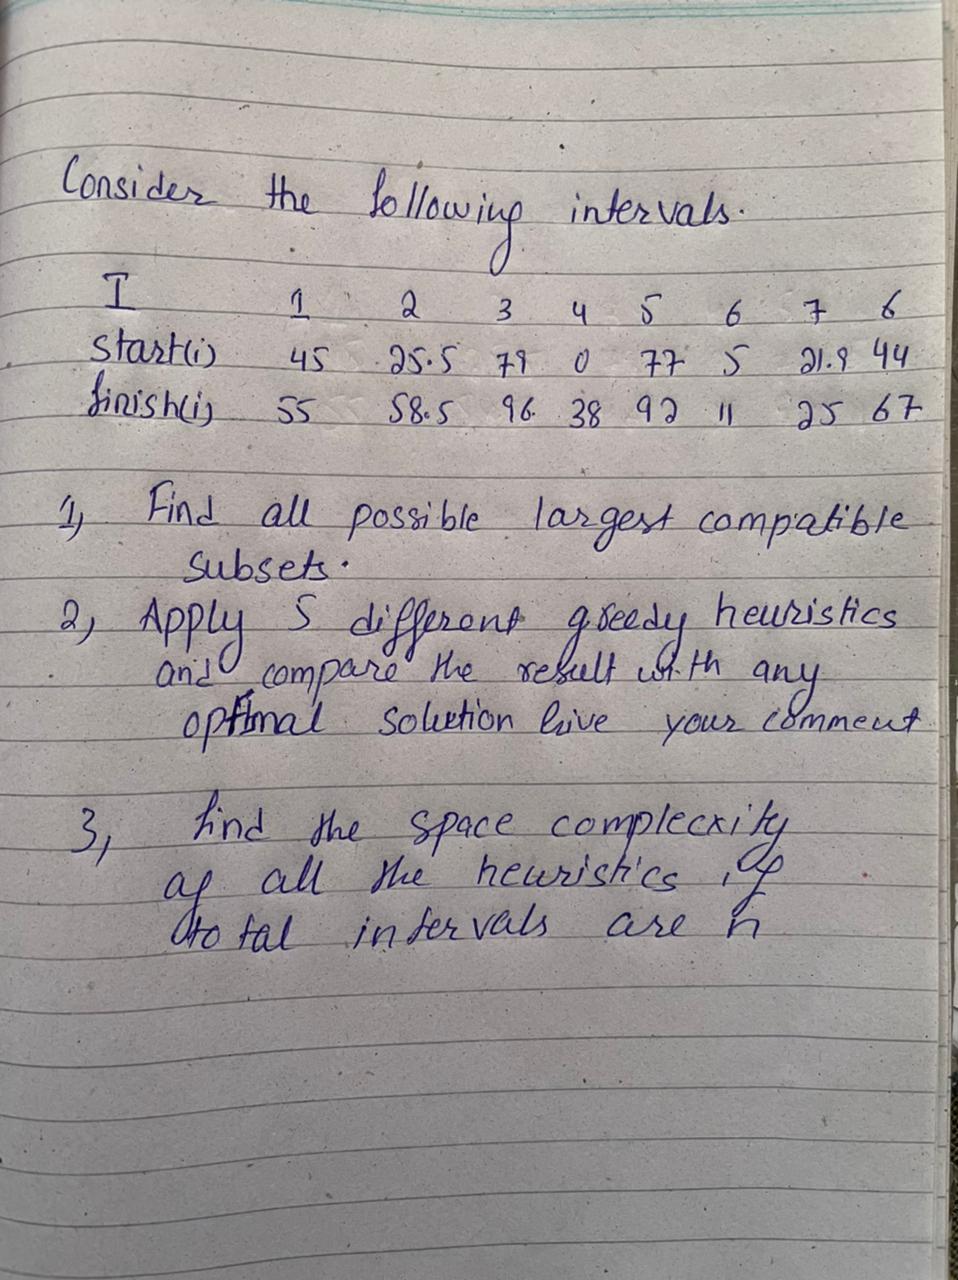 Consider the following intervals.
I 1 2 3 4 5 6 7 6
start(i) 45 25.5 79 0 77 5 21.9 44
finish(i) 55 58.5 96 38 92 11 25 67
1, Find all possible largest compatible
subsets.
2, Apply 5 different greedy heuristics
and compare the result with any
optimal solution Give your comment
3, find the space complecxity
of all the heuristics if
total intervals are n